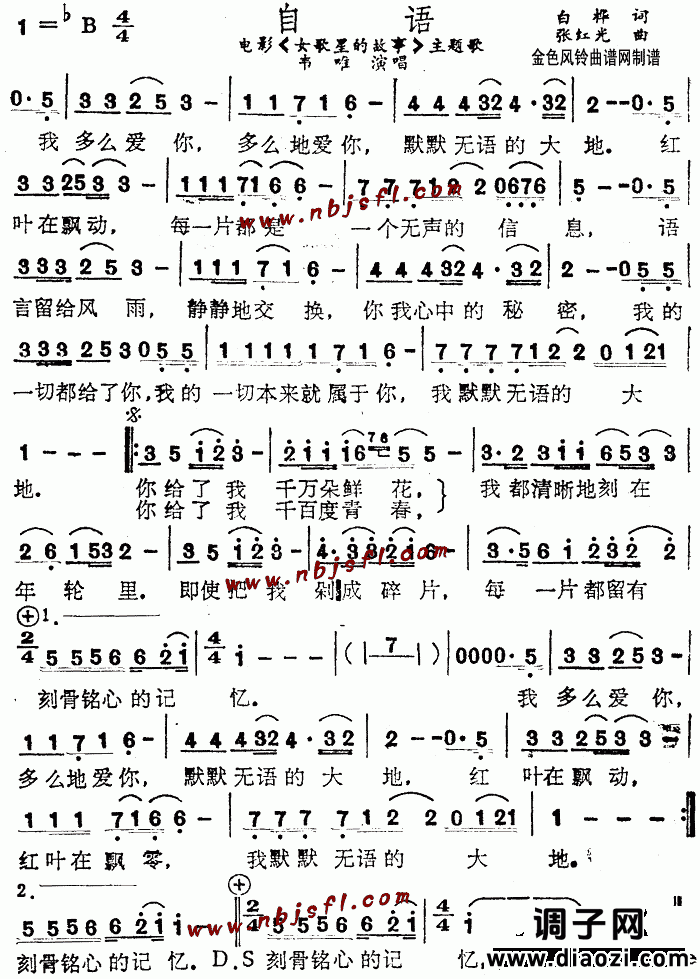 自 语
1=♭B 4/4
白桦 词
张红光 曲
电影《女歌星的故事》主题歌
韦唯演唱
金色风铃曲谱网制谱
0·5 | 3 3 2 5 3 - | 1 1 7 1 6 - | 4 4 4 32 4·32 | 2 - - 0·5 |
我 多么爱 你, 多么地爱你, 默默无语的大地。红
3 3 25 3 3 - | 1 1 1 71 6 6 | 7 7 7 12 2 0676 | 5 - - 0·5 |
叶在飘动, 每一片都是 一个无声的 信 息, 语
www.nbjsfl.com
333 3 2 5 3 - | 1 1 1 7 1 6 - | 4 4 4 32 4·32 | 2 - - 0 5 5 |
言留给风 雨, 静静地交 换, 你我心中的 秘 密, 我的
3 3 3 2 5 3 0 5 5 | 1 1 1 1 1 7 1 6 - | 7 7 7 7 1 2 2 0 121 |
一切都给了你,我的 一切本来就属于你, 我默默无语的 大
1 - - - 3 5 1 2 3 - | 2 1 1 1 1 6 76 5 5 | 3·2 3 1 1 6 5 3 3 |
地。 你给了我 千万朵鲜 花, 我都清晰地刻在
你给了我 千百度青 春,
2 6 1 5 3 2 - | 3 5 1 2 3 - | 4·3 3 2 1 6 | 3·5 6 1 2 3 2 2 |
年 轮 里。 即使把 我 剁成 碎 片, 每 一片都留有
www.nbjsfl.com
1.
2/4 5 5 5 6 6 2 1 | 4/4 1 - - - | (|— 7 —|) | 0000·5 | 3 3 2 5 3 - |
刻骨铭心的记 忆。 我 多么爱你,
1 1 7 1 6 - | 4 4 4 32 4·32 | 2 - 0·5 | 3 3 2 5 3 3
多么地爱你, 默默无语的 大 地, 红 叶在飘动,
1 1 1 7 1 6 6 | 7 7 7 7 1 2 2 2 0 121 | 1 - - - :‖
红叶在飘零, 我默默 无语的 大 地。
www.nbjsfl.com
2.
5 5 5 6 6 2 1 1 - | 2/4 5 5 5 6 6 2 1 | 4/4 1 - - -
刻骨铭心的记 忆。D.S 刻骨铭心的记 忆,
调子网
www.diaozi.com